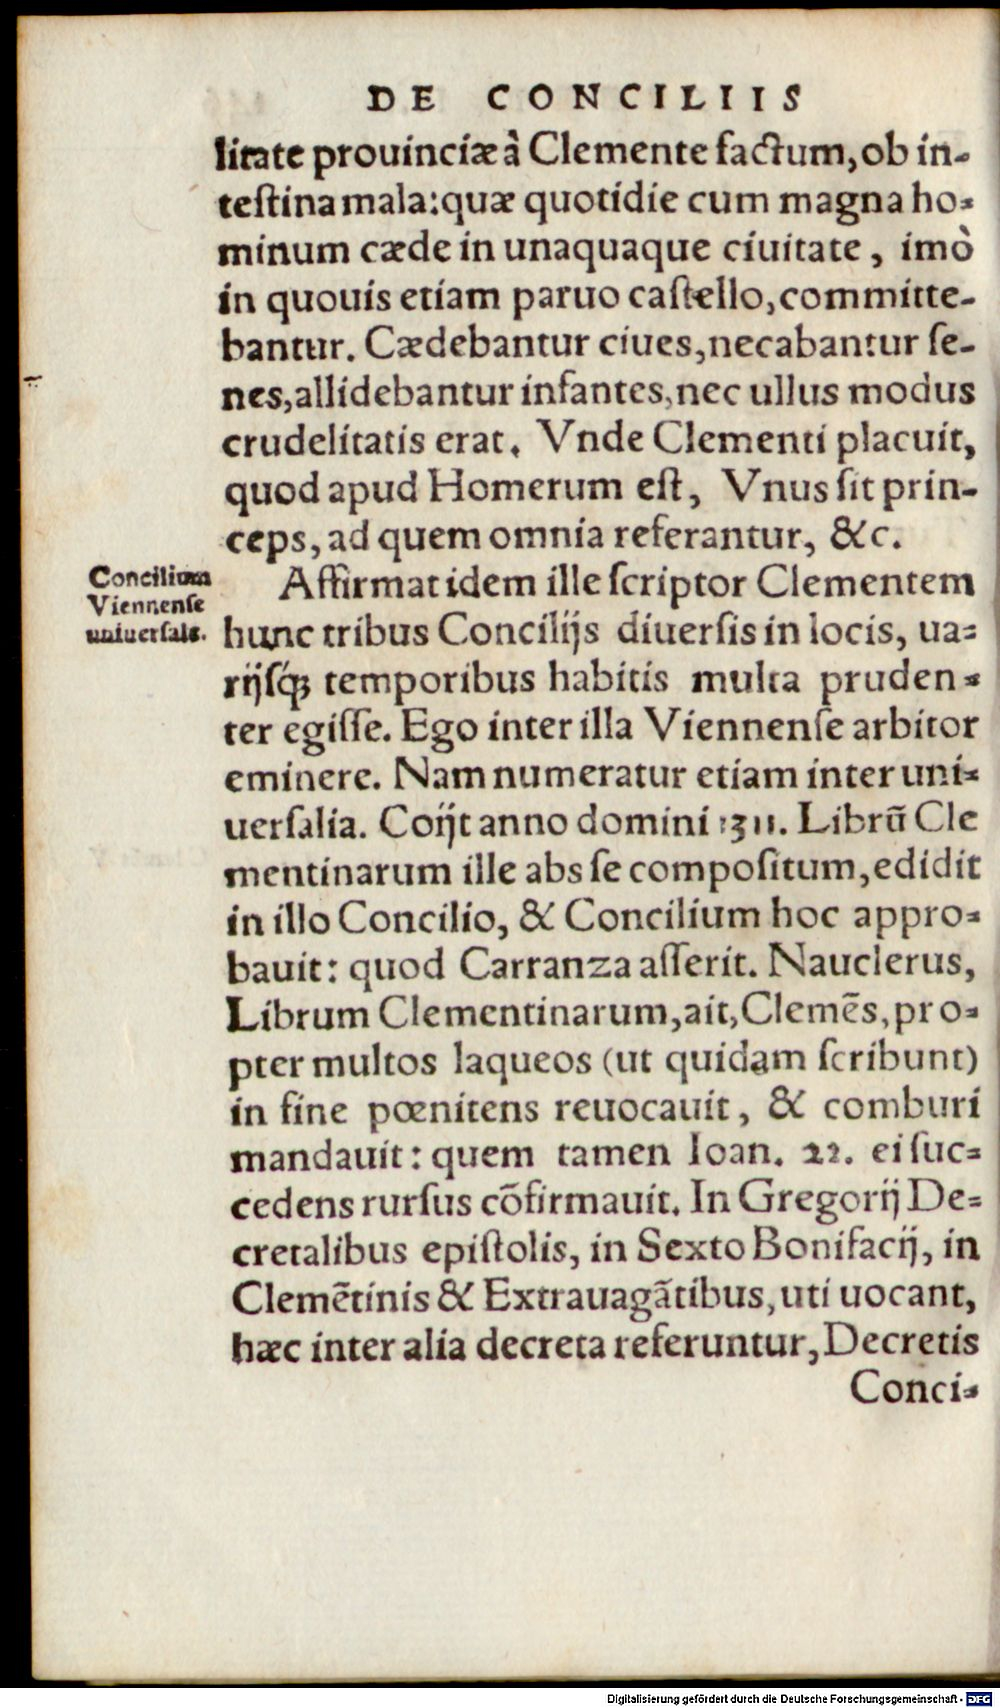 DE CONCILIIS
litate prouinciæ à Clemente factum, ob in-
teſtina mala: quæ quotidie cum magna ho-
minum cæde in unaquaque ciuitate, imò
in quouis etiam paruo caſtello, committe-
bantur. Cædebantur ciues, necabantur ſe-
nes, allidebantur infantes, nec ullus modus
crudelitatis erat. Vnde Clementi placuit,
quod apud Homerum eſt, Vnus ſit prin-
ceps, ad quem omnia referantur, &c.
Concilium
Viennenſe
uniuerſale.
Affirmat idem ille ſcriptor Clementem
hunc tribus Concilijs diuerſis in locis, ua-
rijſq́ꝫ temporibus habitis multa pruden-
ter egiſſe. Ego inter illa Viennenſe arbitor
eminere. Nam numeratur etiam inter uni-
uerſalia. Coijt anno domini 1311. Librũ Cle
mentinarum ille abs se compoſitum, edidit
in illo Concilio, & Concilium hoc appro-
bauit: quod Carranza aſſerit. Nauclerus,
Librum Clementinarum, ait, Clemẽs, pro-
pter multos laqueos (ut quidam ſcribunt)
in fine pœnitens reuocauit, & comburi
mandauit: quem tamen Ioan. 22. ei ſuc-
cedens rurſus cõfirmauit. In Gregorij De-
cretalibus epiſtolis, in Sexto Bonifacij, in
Clemẽtinis & Extrauagãtibus, uti uocant,
hæc inter alia decreta referuntur, Decretis
Conci-
Digitalisierung gefördert durch die Deutsche Forschungsgemeinschaft - DFG